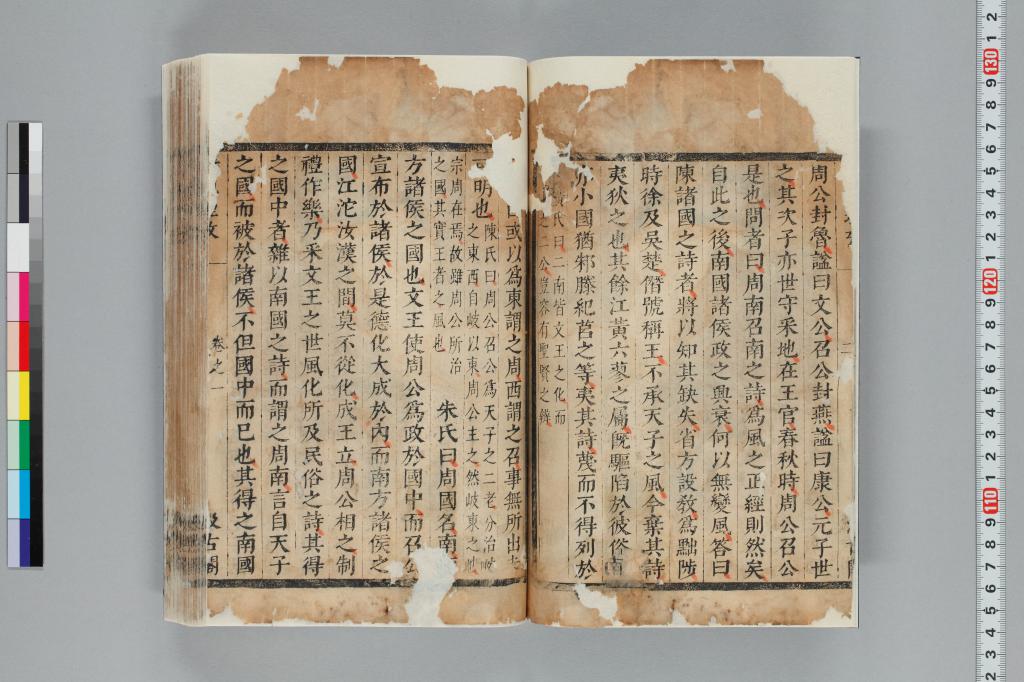 周公封魯謚曰文公召公封燕謚曰康公元子世
之其次子亦世守采地在王官春秋時周公召公
是也問者曰周南召南之詩為風之正經則然矣
自此之後南國諸侯政之興衰何以無變風答曰
陳諸國之詩者將以知其缺失省方設敎為黜陟
時徐及吳楚僭號稱王不承天子之風今棄其詩
夷狄之也其餘江黃六蓼之屬旣驅陷於彼俗
小國猶邾滕紀莒之等夷其詩蔑而不得列於
氏曰二南皆文王之化而
二公豈容有聖賢之辨
或以爲東謂之周西謂之召事無所出
明也
陳氏曰周公召公爲天子之二老分治岐
之東西自岐以東周公主之然岐東之
宗周在焉故雖周公所治
之國其實王者之風也
朱氏曰周國名南
方諸侯之國也文王使周公爲政於國中而召公
宣布於諸侯於是德化大成於內而南方諸侯之
國江沱汝漢之間莫不從化成王立周公相之制
禮作樂乃采文王之世風化所及民俗之詩其得
之國中者雜以南國之詩而謂之周南言自天子
之國而被於諸侯不但國中而已也其得之南國
卷之一
汲古閣